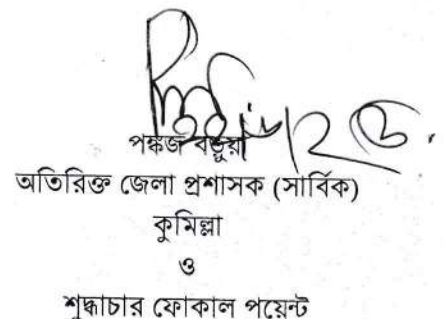 পঙ্কজ বড়ুয়া
অতিরিক্ত জেলা প্রশাসক (সার্বিক)
কুমিল্লা
ও
শুদ্ধাচার ফোকাল পয়েন্ট